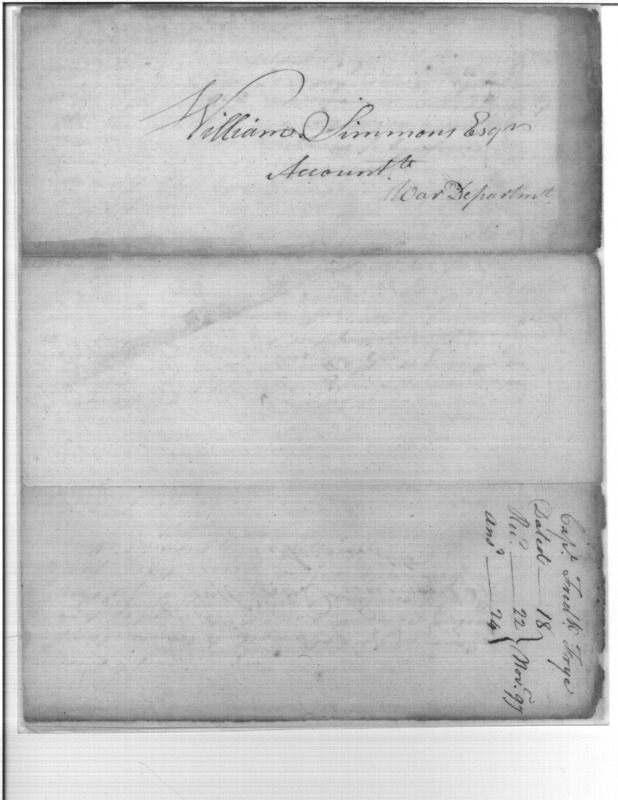 William Simmons Esqr
Accountt
War Departmt
Capt. Fredk Frye
Dated — 18
Rec. — 22 } Nov. 97
ansd — 24